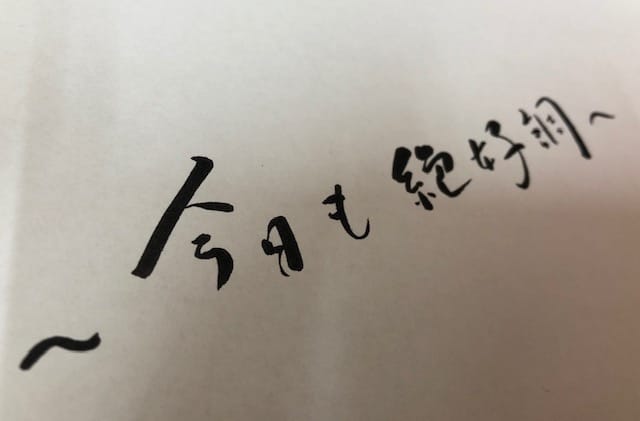 〜今日も絶好調〜